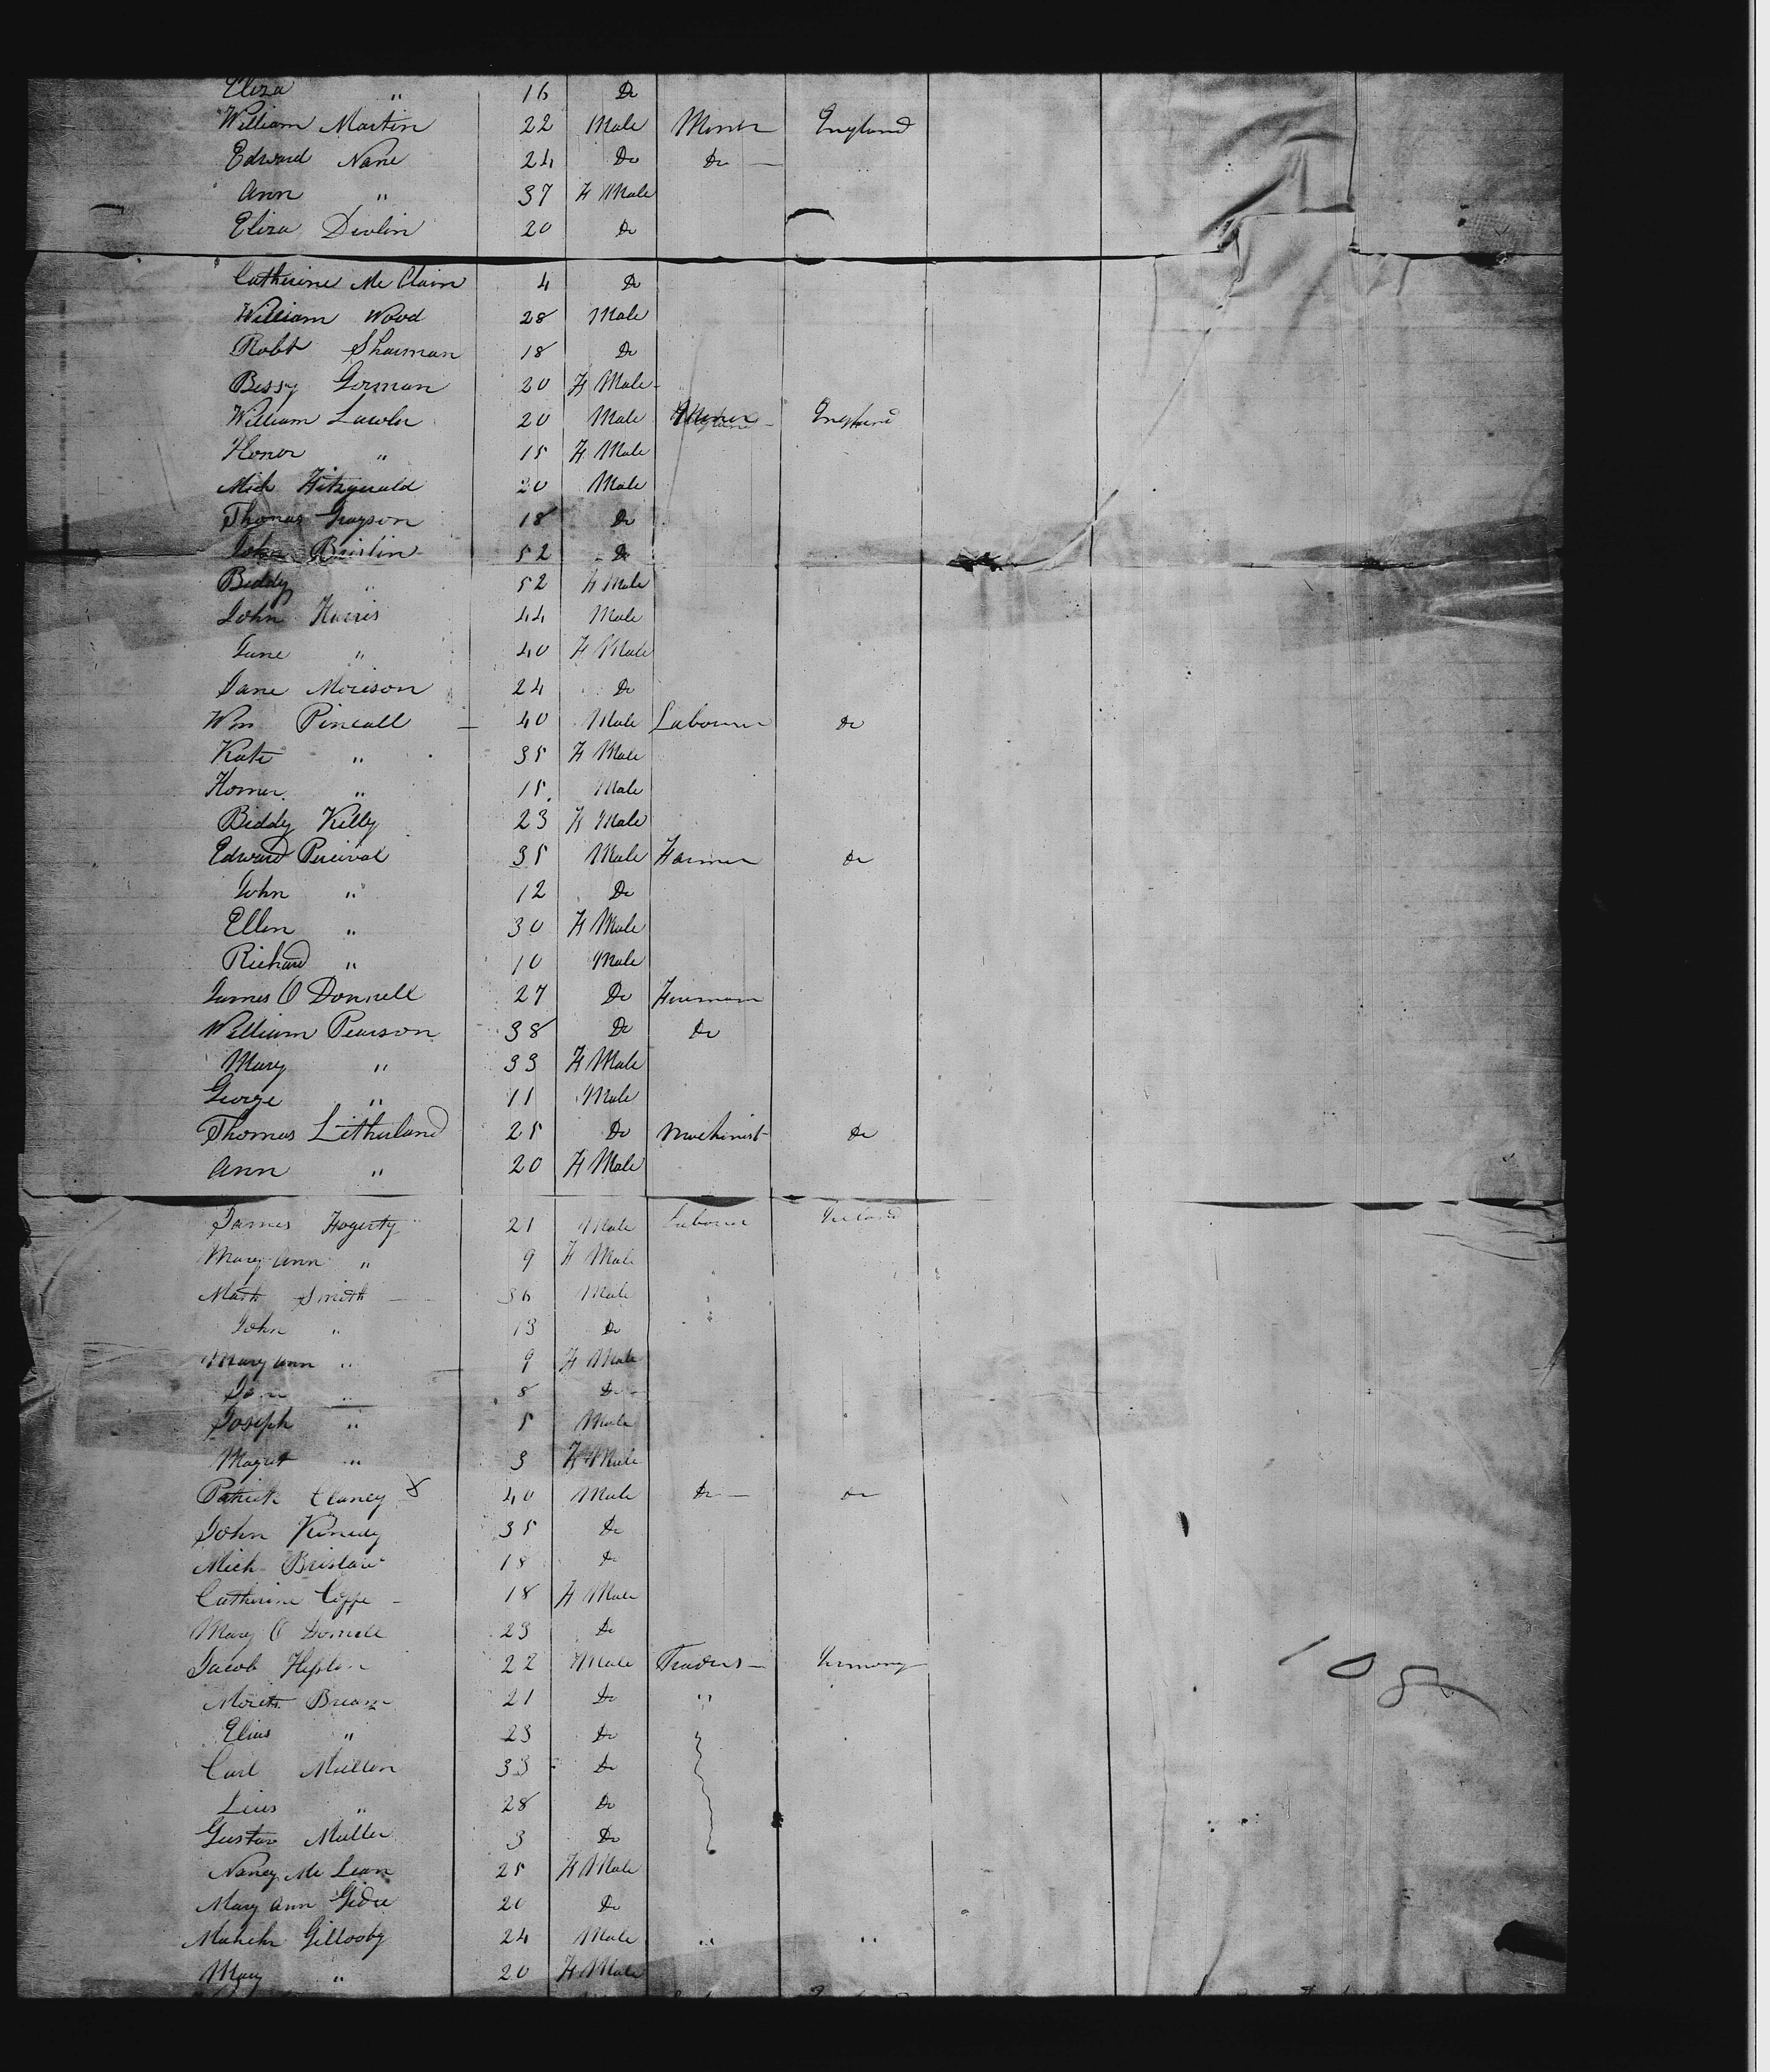 Eliza " 16 Do
William Martin 22 Male Miner England
Edward Nane 24 Do Do —
Ann " 37 F Male
Eliza Divlin 20 Do
Catherine Mc Clain 4 Do
William Wood 28 Male
Robt Sharman 18 Do
Bessy Gorman 20 F Male
William Lawler 20 Male England
Honor " 15 F Male
Mich Fitzgerald 20 Male
Thomas Grayson 18 Do
John Brislin 52 Do
Biddy " 52 F Male
John Harris 44 Male
Jane " 40 F Male
Jane Morison 24 Do
Wm Pincall 40 Male Labourer Do
Kate " 35 F Male
Homer " 15 Male
Biddy Kelly 23 F Male
Edward Percival 35 Male Farmer Do
John " 12 Do
Ellen " 30 F Male
Richard " 10 Male
James O Donnell 27 Do Fireman
William Pearson 38 Do Do
Mary " 33 F Male
George " 11 Male
Thomas Litherland 25 Do Machinist Do
Ann " 20 F Male
James Hogerty 21 Male Labourer Ireland
Mary Ann " 9 F Male
Math Smith — 36 Male
John " 13 Do
Mary Ann " 9 F Male
Jane " 8 Do
Joseph " 5 Male
Magret " 3 F Male
Patrick Clancy X 40 Male Do — Do
John Kenedy 35 Do
Mich Bristow 18 Do
Catherine Coffe 18 F Male
Mary O Donnell 23 Do
Jacob 22 Male Traders — Germany
Moritz Bream 21 Do "
Elias " 23 Do
Carl Mullen 33 Do
" 28 Do
Gustav Muller 3 Do
Nancy Mc Lean 25 F Male
Mary Ann 20 Do
Gillooby 24 Male " "
Mary " 20 F Male
108